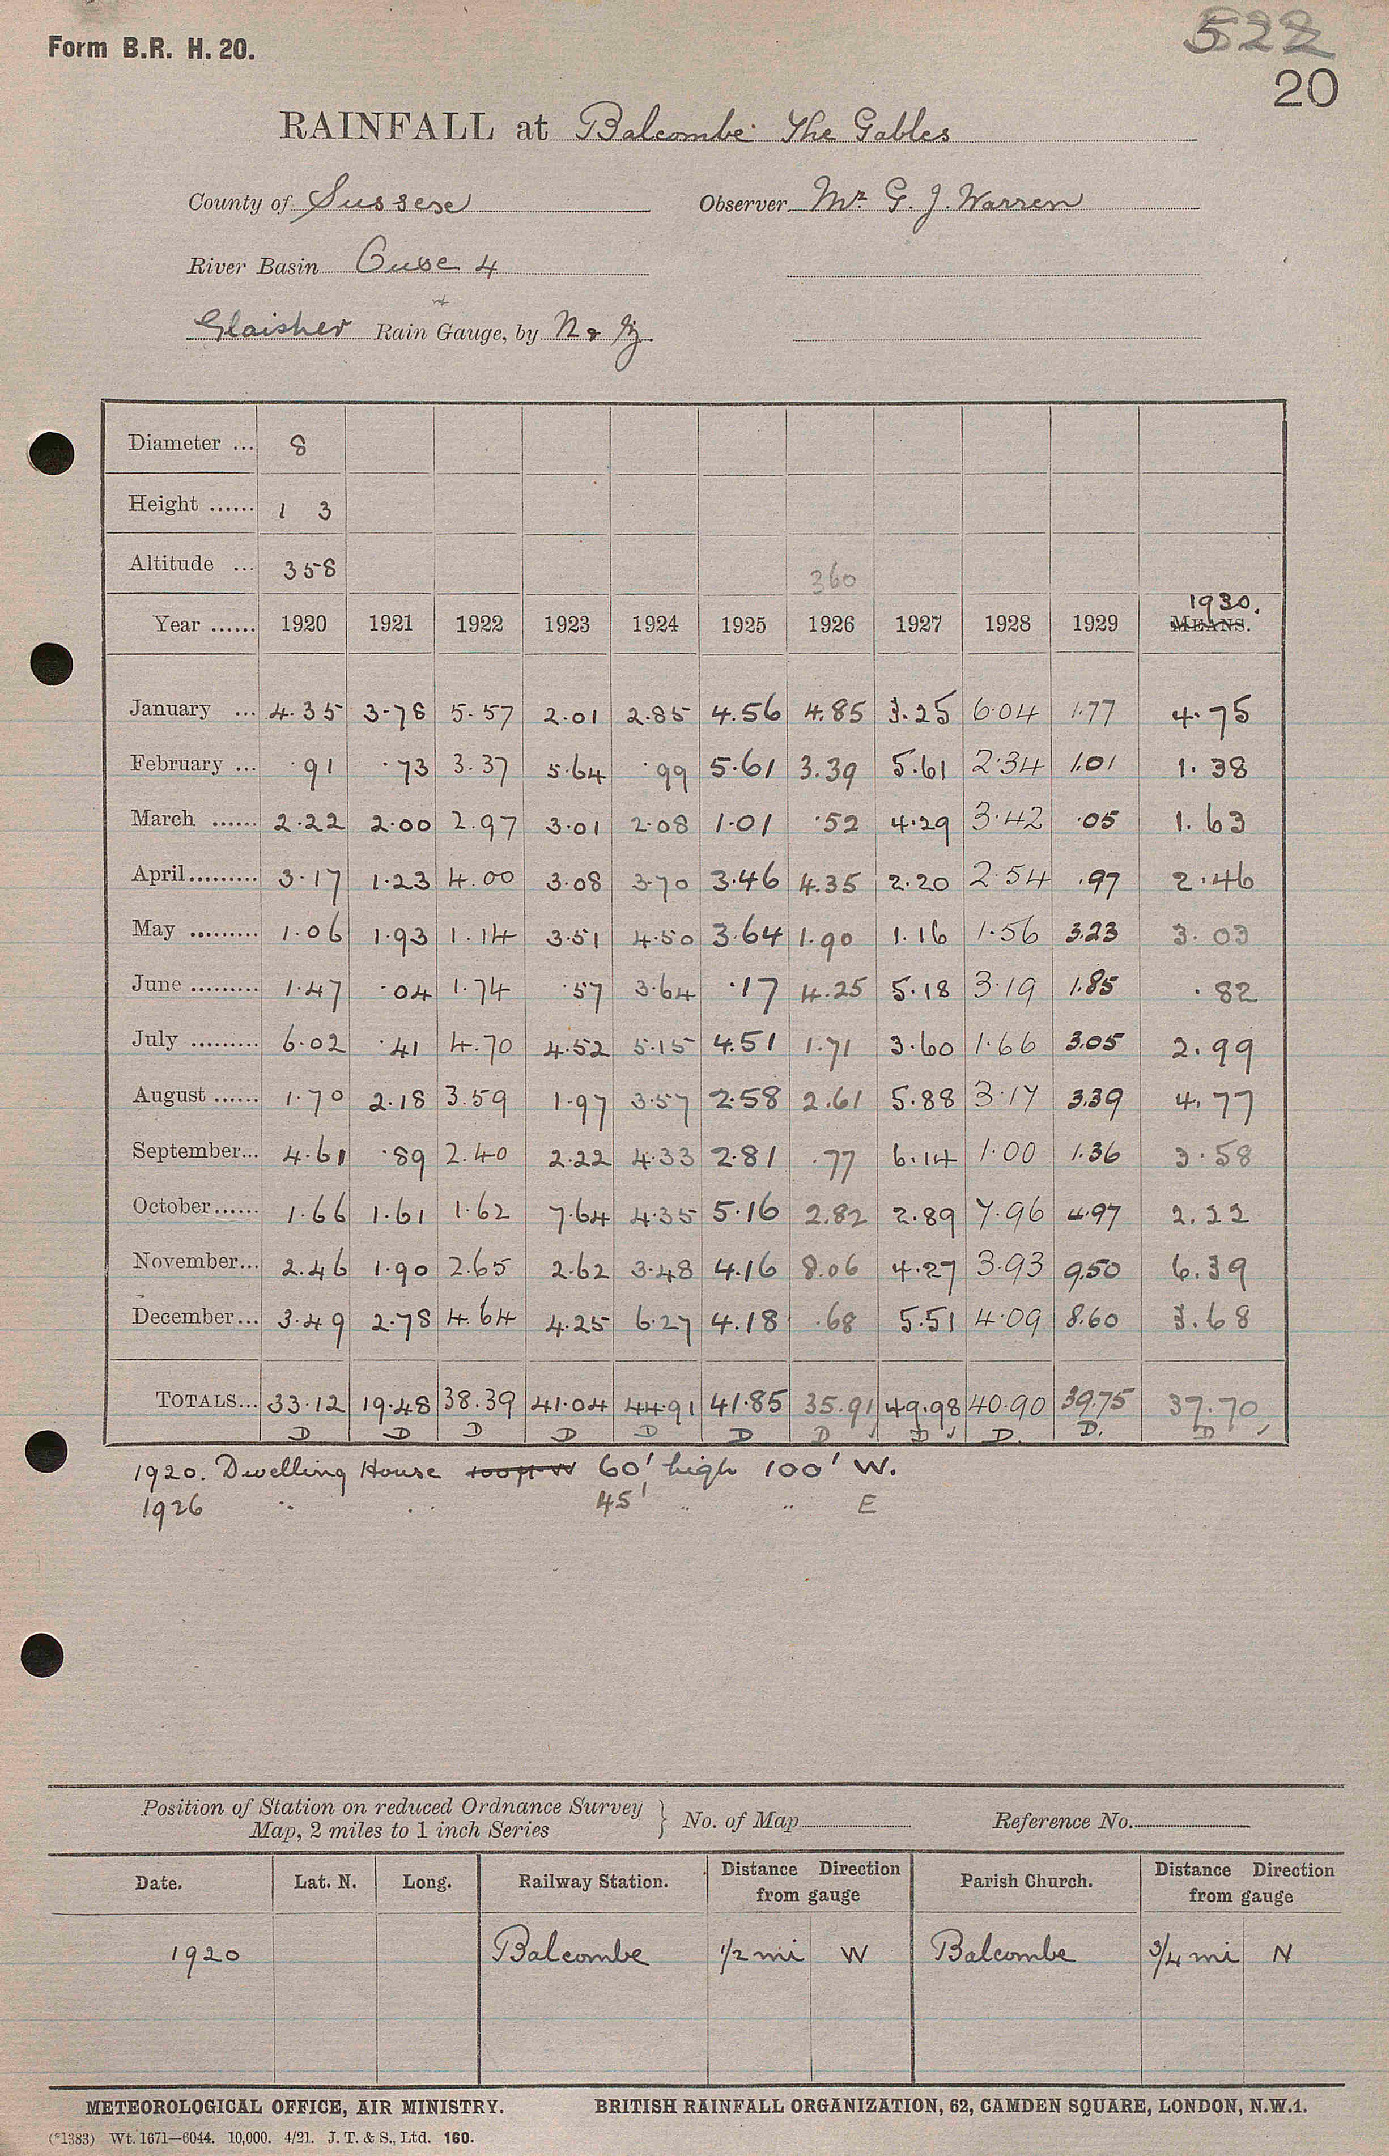 Form B.R. H. 20.
522
20
RAINFALL at Balcombe: The Gables
County of Sussex Observer Mr. G. J. Warren
River Basin Ouse 4
Glaisher Rain Gauge, by N & Z
Diameter ... 8
Height ...... 1 3
Altitude ... 358 360
Year ...... 1920 1921 1922 1923 1924 1925 1926 1927 1928 1929 MEANS. 1930.
January ... 4.35 3.78 5.57 2.01 2.85 4.56 4.85 3.25 6.04 1.77 4.75
February ... .91 .73 3.37 5.64 .99 5.61 3.39 5.61 2.34 1.01 1.38
March ...... 2.22 2.00 2.97 3.01 2.08 1.01 .52 4.29 3.42 .05 1.63
April ......... 3.17 1.23 4.00 3.08 3.70 3.46 4.35 2.20 2.54 .97 2.46
May ......... 1.06 1.93 1.14 3.51 4.50 3.64 1.90 1.16 1.56 3.23 3.03
June ......... 1.47 .04 1.74 .57 3.64 .17 4.25 5.18 3.19 1.85 .82
July ......... 6.02 .41 4.70 4.52 5.15 4.51 1.71 3.60 1.66 3.05 2.99
August ...... 1.70 2.18 3.59 1.97 3.57 2.58 2.61 5.88 3.17 3.39 4.77
September... 4.61 .89 2.40 2.22 4.33 2.81 .77 6.14 1.00 1.36 3.58
October ...... 1.66 1.61 1.62 7.64 4.35 5.16 2.82 2.89 7.96 4.97 2.22
November... 2.46 1.90 2.65 2.62 3.48 4.16 8.06 4.27 3.93 9.50 6.39
December... 3.49 2.78 4.64 4.25 6.27 4.18 .68 5.51 4.09 8.60 3.68
TOTALS... 33.12 19.48 38.39 41.04 44.91 41.85 35.91 49.98 40.90 39.75 37.70
D D D D D D D D D. D. D
1920. Dwelling House 100ft W 60' high 100' W.
1926 " " 45' " " E
Position of Station on reduced Ordnance Survey Map, 2 miles to 1 inch Series } No. of Map Reference No.
Date. Lat. N. Long. Railway Station. Distance Direction from gauge Parish Church. Distance Direction from gauge
1920 Balcombe 1/2 mi W Balcombe 3/4 mi N
METEOROLOGICAL OFFICE, AIR MINISTRY. BRITISH RAINFALL ORGANIZATION, 62, CAMDEN SQUARE, LONDON, N.W.1.
(*1383) Wt. 1671—6044. 10,000. 4/21. J. T. & S., Ltd. 160.